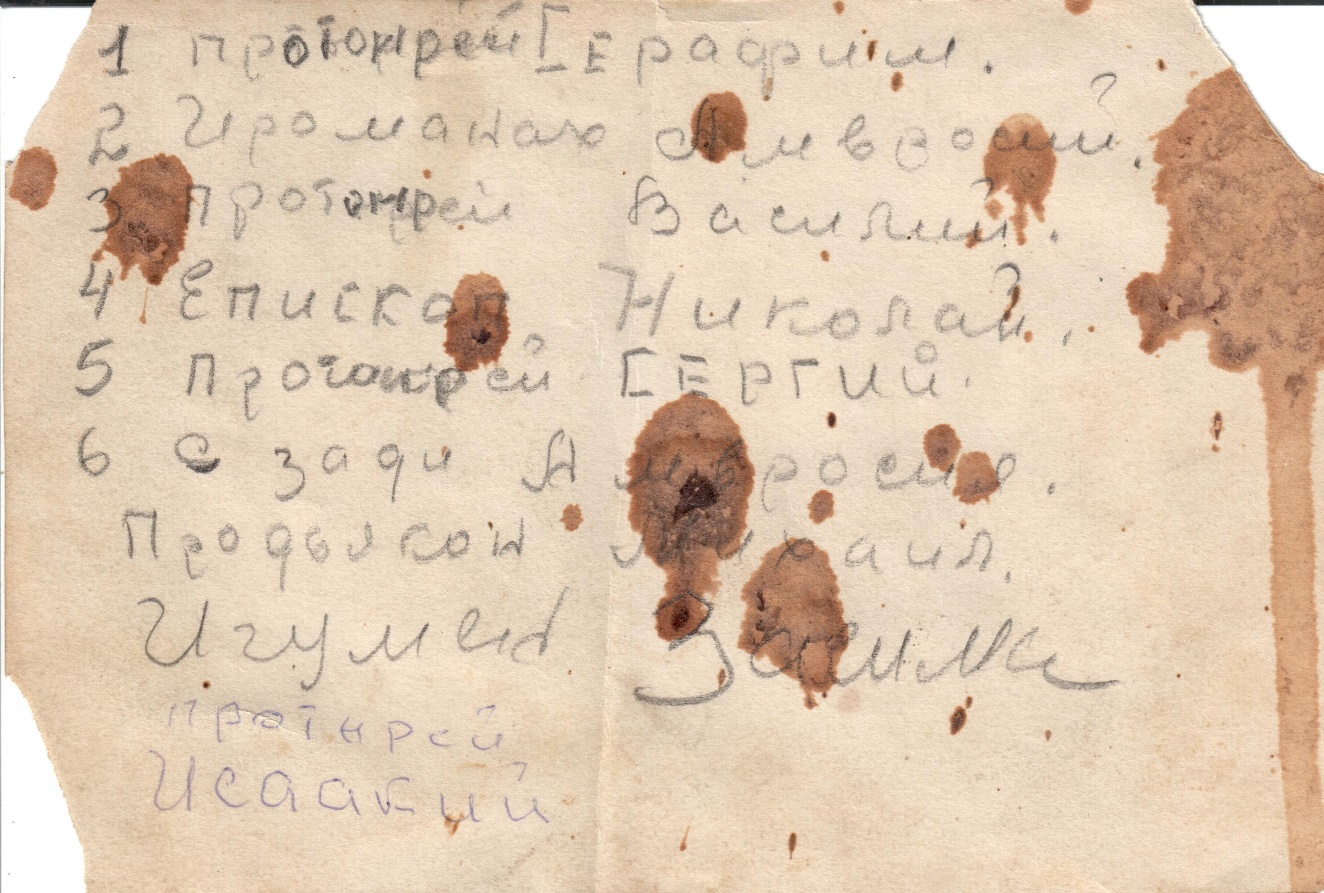 1 протонрей Серафим.
2 Ироманах Амвросий.
3 протонрей Василий.
4 Епископ Николай.
5 протонрей СЕРГИЙ
6 с зади Амвросия.
Продьякон Михаил.
Игумен Зосима
протнрей
Исаакий